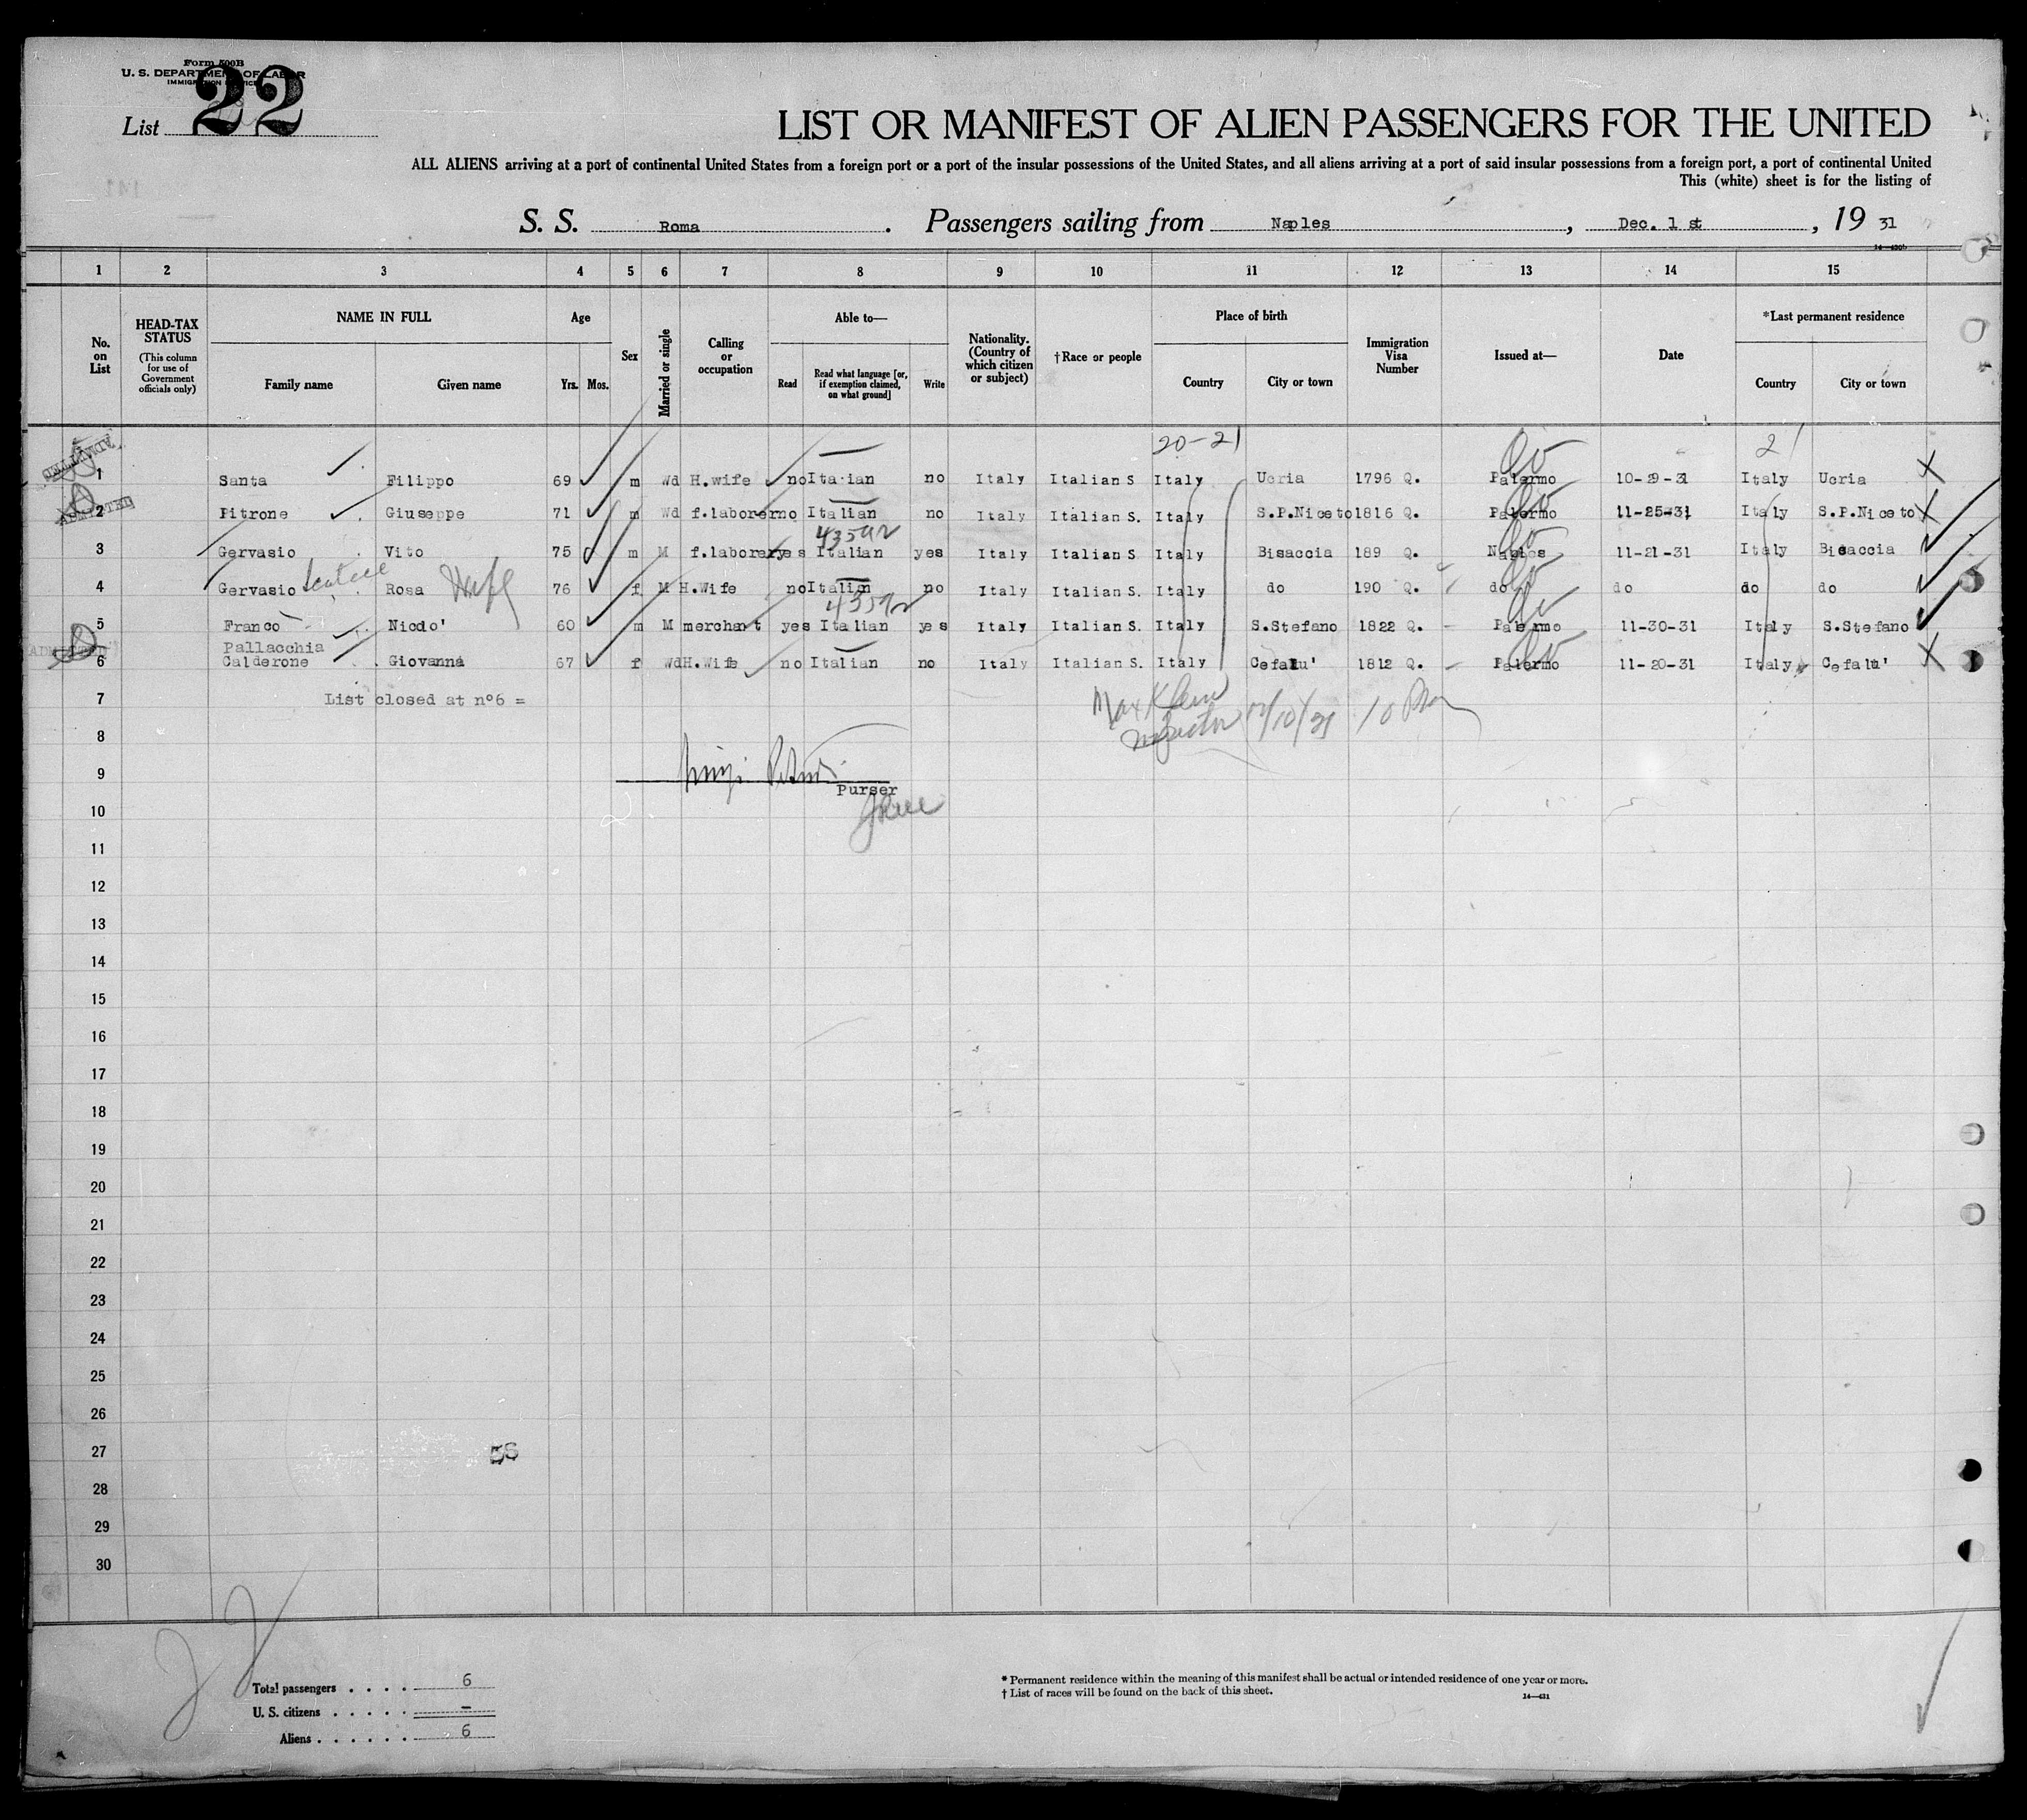 Form 500B
U. S. DEPARTMENT OF LABOR
IMMIGRATION SERVICE
22
List
LIST OR MANIFEST OF ALIEN PASSENGERS FOR THE UNITED
ALL ALIENS arriving at a port of continental United States from a foreign port or a port of the insular possessions of the United States, and all aliens arriving at a port of said insular possessions from a foreign port, a port of continental United
This (white) sheet is for the listing of
S. S. Roma . Passengers sailing from Naples , Dec. 1 st , 19 31
1 2 3 4 5 6 7 8 9 10 11 12 13 14 15
No. on List
HEAD-TAX STATUS (This column for use of Government officials only)
NAME IN FULL Family name Given name
Age Yrs. Mos.
Sex
Married or single
Calling or occupation
Able to— Read Read what language [or, if exemption claimed, on what ground] Write
Nationality. (Country of which citizen or subject)
†Race or people
Place of birth Country City or town
Immigration Visa Number
Issued at—
Date
*Last permanent residence Country City or town
20-21 21
ADMITTED
1 Santa Filippo 69 m Wd H.wife no Italian no Italy Italian S Italy Ucria 1796 Q. Palermo 10-29-31 Italy Ucria X
ADMITTED
2 Pitrone Giuseppe 71 m Wd f.laborer no Italian no Italy Italian S. Italy S.P.Niceto 1816 Q. Palermo 11-25-31 Italy S.P.Niceto X
3 Gervasio Vito 75 m M f.laborer yes Italian yes Italy Italian S Italy Bisaccia 189 Q. Naples 11-21-31 Italy Bisaccia
4 Gervasio Rosa Wife 76 f M H.Wife no Italian no Italy Italian S. Italy do 190 Q. do do do do
5 Franco Nicolo' 60 m M merchant yes Italian yes Italy Italian S. Italy S.Stefano 1822 Q. Palermo 11-30-31 Italy S.Stefano
ADMITTED
Pallacchia
6 Calderone Giovanna 67 f Wd H.Wife no Italian no Italy Italian S. Italy Cefalu' 1812 Q. Palermo 11-20-31 Italy Cefalu' X
7 List closed at nº6 =
Max Klein
Inspector 12/10/31 10 PM
8
9
Purser
10
11
12
13
14
15
16
17
18
19
20
21
22
23
24
25
26
27 56
28
29
30
Total passengers . . . . 6
U. S. citizens . . . . . –
Aliens . . . . . . 6
* Permanent residence within the meaning of this manifest shall be actual or intended residence of one year or more.
† List of races will be found on the back of this sheet.
14—431